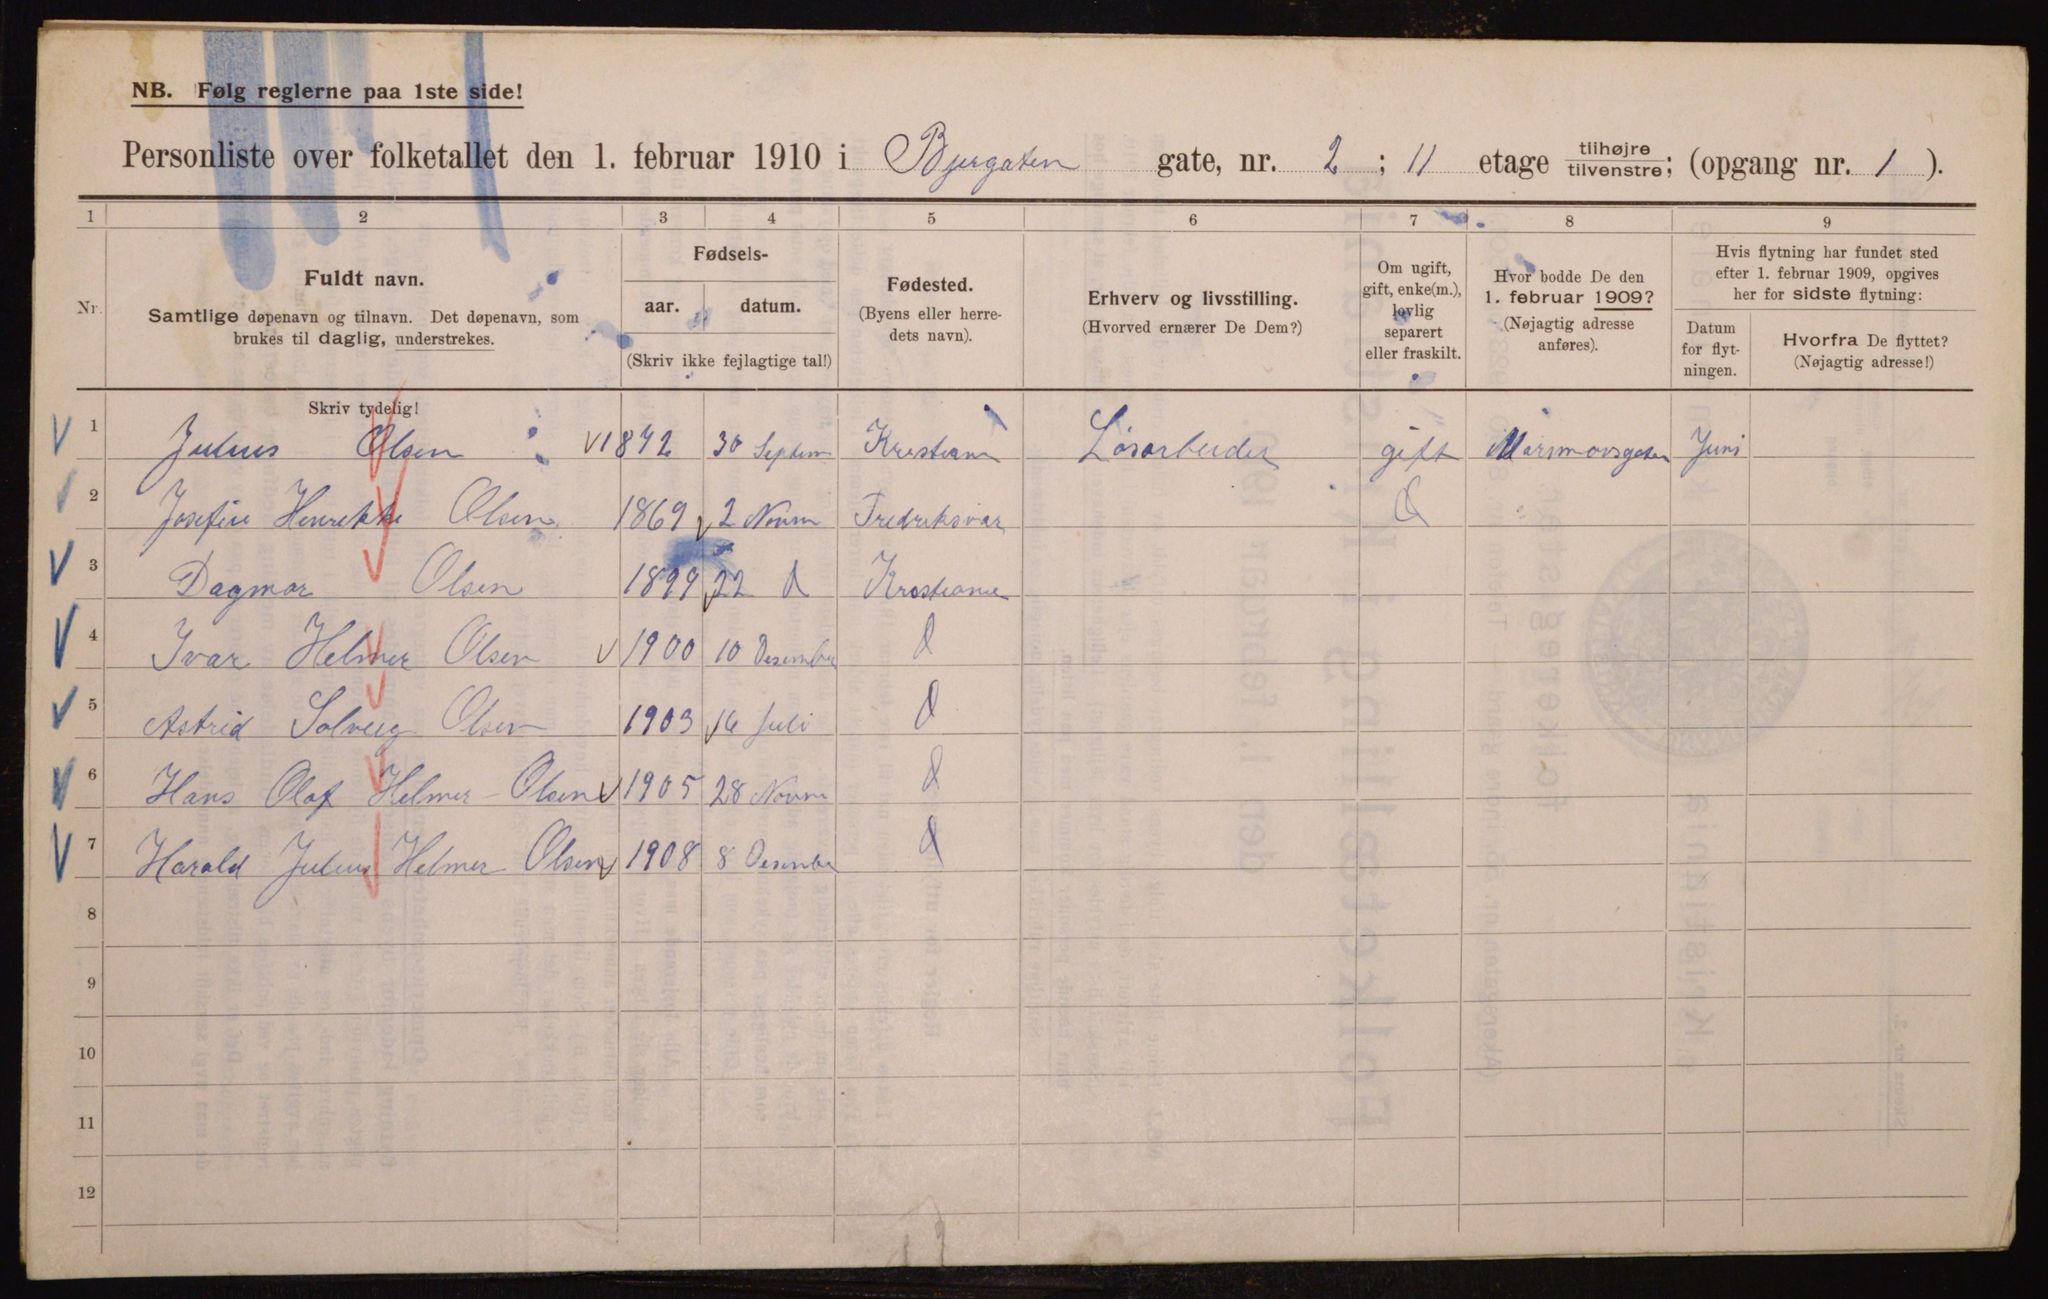 NB. Følg reglerne paa 1ste side!
Personliste over folketallet den 1. februar 1910 i Bjergaten gate, nr. 2 ; 11 etage tilhøjre/tilvenstre; (opgang nr. 1 ).
1 2 3 4 5 6 7 8 9
Nr. Fuldt navn. Samtlige døpenavn og tilnavn. Det døpenavn, som brukes til daglig, understrekes.
Fødsels-
aar. datum.
(Skriv ikke fejlagtige tal!)
Fødested. (Byens eller herredets navn).
Erhverv og livsstilling. (Hvorved ernærer De Dem?)
Om ugift, gift, enke(m.), lovlig separert eller fraskilt.
Hvor bodde De den 1. februar 1909? (Nøjagtig adresse anføres).
Hvis flytning har fundet sted efter 1. februar 1909, opgives her for sidste flytning:
Datum for flytningen.
Hvorfra De flyttet? (Nøjagtig adresse!)
Skriv tydelig!
1 Julius Olsen 1872 30 Septem Kristiania Løsarbeider gift Juni
2 Josefine Henrikke Olsen 1869 2 Novm Fredriksvær d
3 Dagmar Olsen 1899 22 d Kristiania
4 Ivar Helmer Olsen 1900 10 Desember d
5 Astrid Solveig Olsen 1903 16 Juli d
6 Hans Olaf Helmer Olsen 1905 28 Novm d
7 Harald Julius Helmer Olsen 1908 8 Desember d
8
9
10
11
12